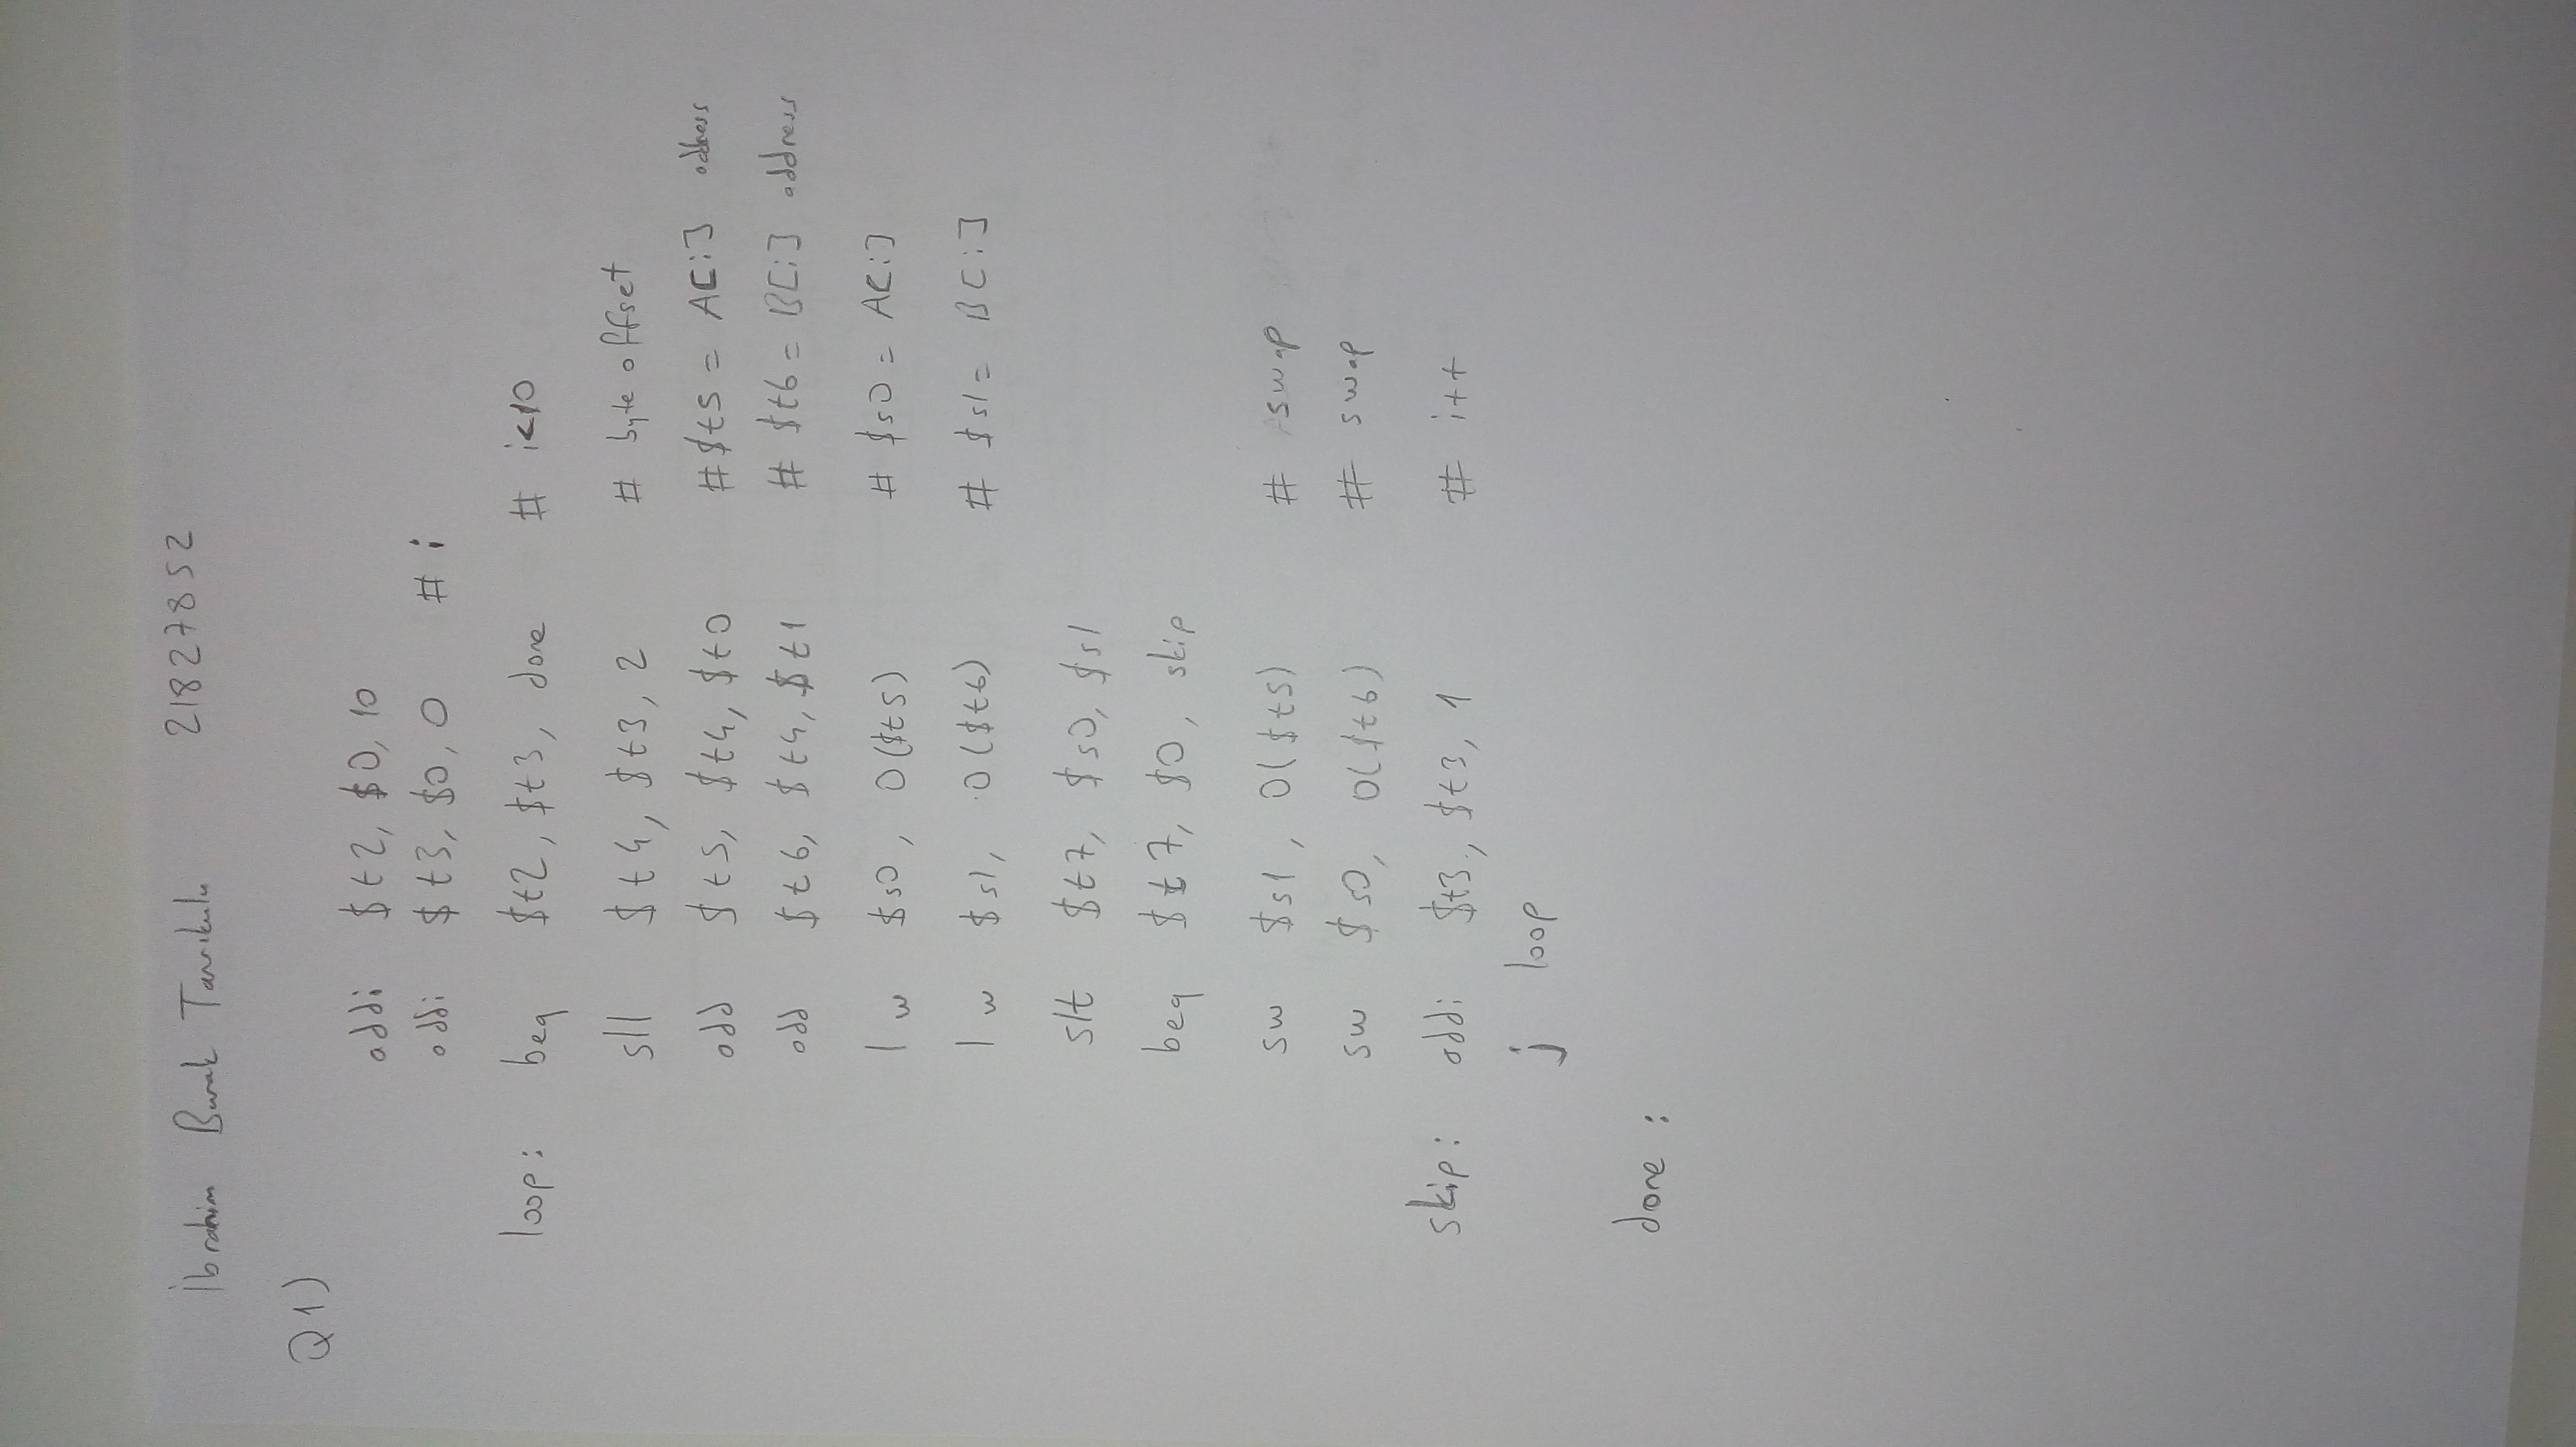 İbrahim Burak Tanrıkulu 21827852
Q1)
addi $t2, $0, 10
addi $t3, $0, 0 # i
loop: beq $t2, $t3, done # i<10
sll $t4, $t3, 2 # byte offset
add $t5, $t4, $t0 # $t5 = A[i] address
add $t6, $t4, $t1 # $t6 = B[i] address
lw $s0, 0($t5) # $s0 = A[i]
lw $s1, 0($t6) # $s1 = B[i]
slt $t7, $s0, $s1
beq $t7, $0, skip
sw $s1, 0($t5) # swap
sw $s0, 0($t6) # swap
skip: addi $t3, $t3, 1 # i++
j loop
done :